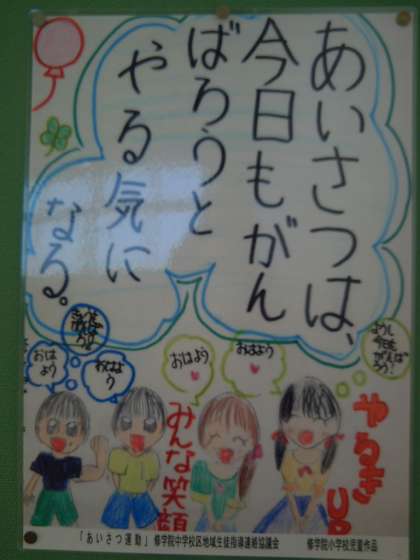 あいさつは、
今日もがん
ばろうと
やる気に
なる。
よーし
今日も
がんば
ろう!
おはよう
おはよう
おはよ
う
おは
よう
やる気
UP
みんな笑顔
「あいさつ運動」 修学院中学校区地域生徒指導連絡協議会
修学院小学校児童作品